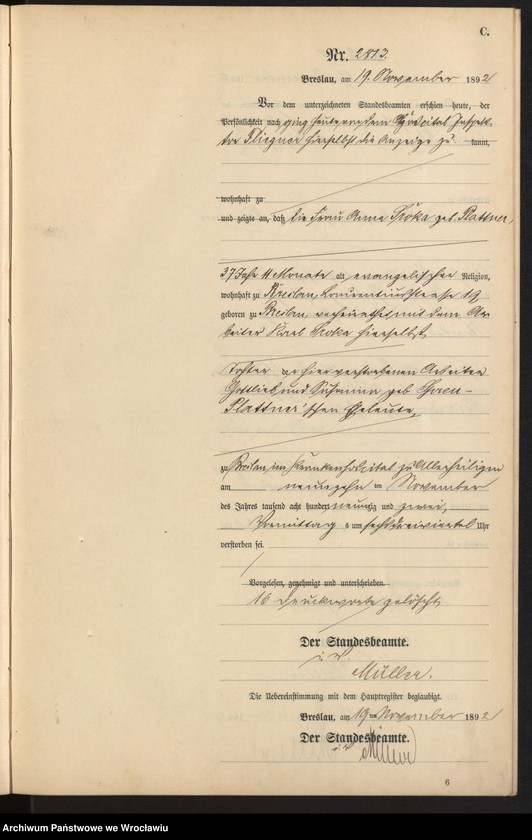 C.
Nr. 2813.
Breslau, am 19. November 1892
Vor dem unterzeichneten Standesbeamten erschien heute, der
Persönlichkeit nach ging heute von dem Hospital Inspek-
tor Fliegner hierselbst die Anzeige zu kannt,
wohnhaft zu
und zeigte an, daß die Frau Anna geb. Plattner,
37 Jahr 11 Monate alt evangelischer Religion,
wohnhaft zu Breslau, 19
geboren zu Breslau, verheirathet mit dem Ar-
beiter Karl hierselbst,
Tochter der hier verstorbenen Arbeiter
Gottlieb und Susanna geb.
Plattner'schen Eheleute,
zu Breslau, im Krankenhospital zu Allerheiligen
am neunzehn ten November
des Jahres tausend acht hundert neunzig und zwei,
Vormittags um sechsdreiviertel Uhr
verstorben sei.
Vorgelesen, genehmigt und unterschrieben.
16 Druckworte gelöscht
Der Standesbeamte.
i. V.
Müller.
Die Uebereinstimmung mit dem Hauptregister beglaubigt.
Breslau, am 19ten November 1892
Der Standesbeamte.
i. V. Müller
6
Archiwum Państwowe we Wrocławiu